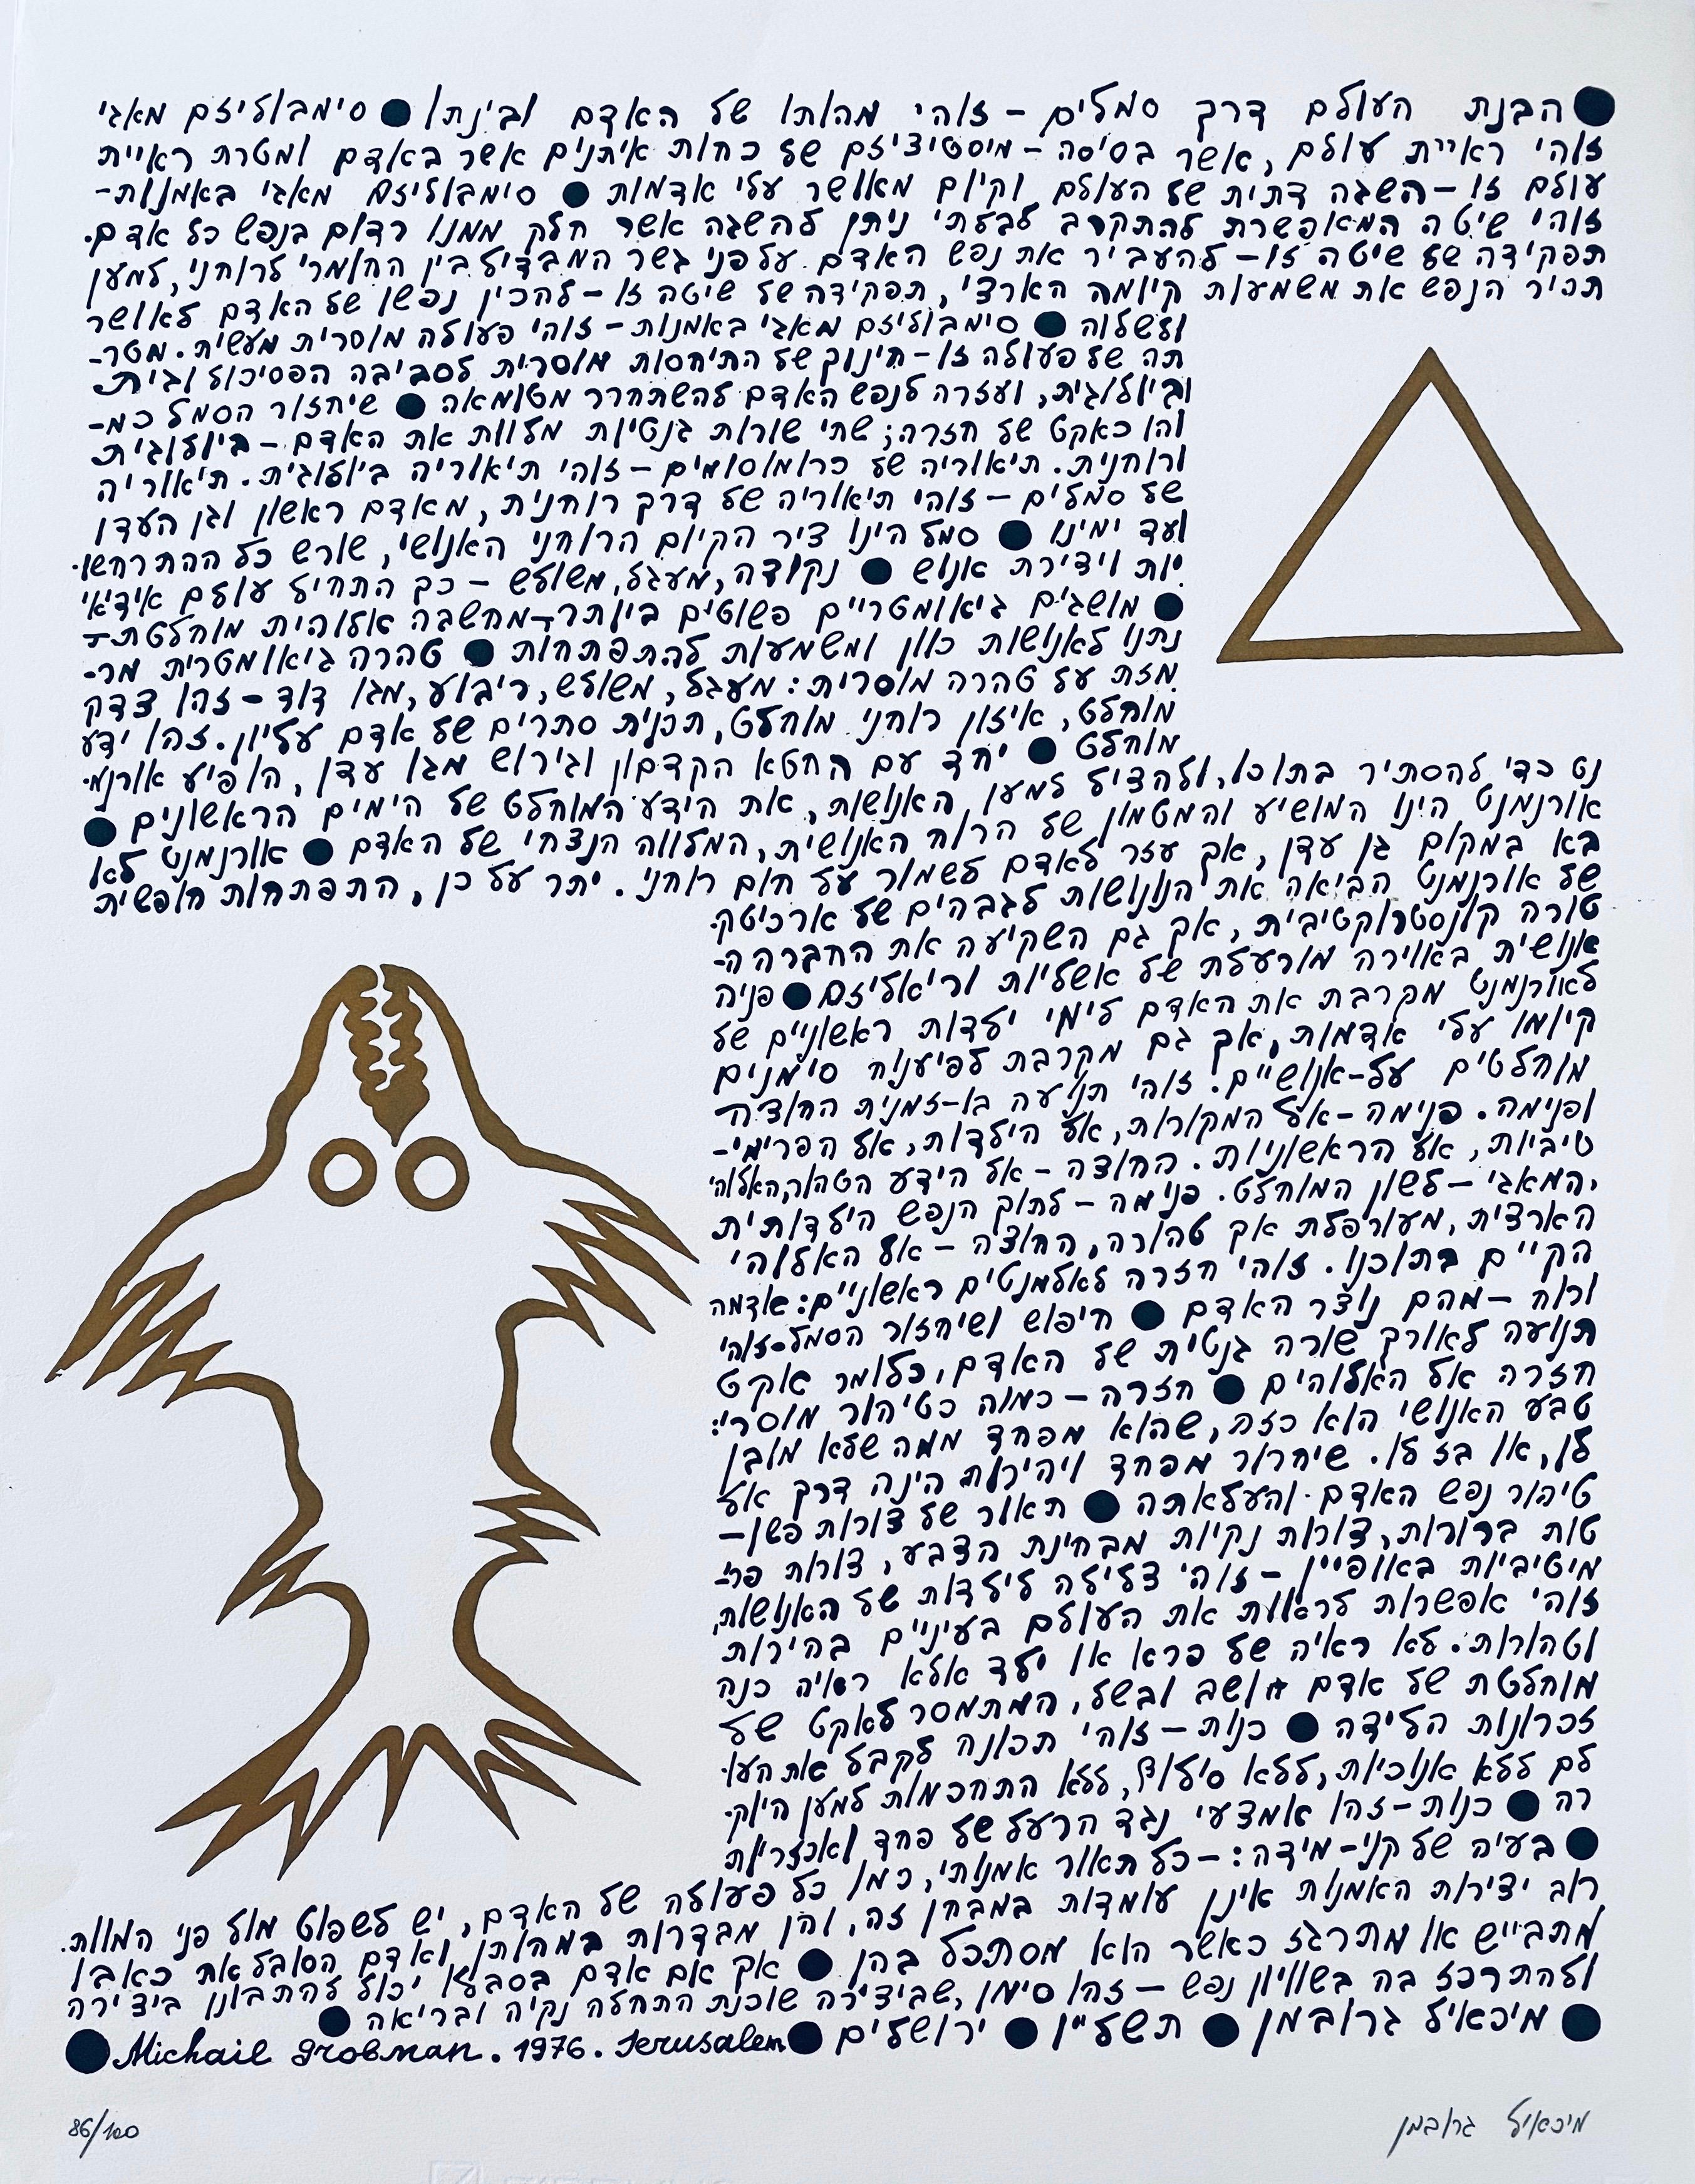 ● הבנת העולם דרך סמלים – זוהי מהותו של האדם ובינתו ● סימבוליזם מאגי
זוהי ראיית עולם, אשר בסיסה – מיסטיציזם של כחות איתנים אשר באדם ומטרת ראיית
עולם זו – השגה דתית של העולם וקיום מאושר עלי אדמות ● סימבוליזם מאגי באמנות-
זוהי שיטה המאפשרת להתקרב לבלתי ניתן להשגה אשר חלק ממנו רדום בנפש כל אדם.
תפקידה של שיטה זו – להעביר את נפש האדם על פני גשר המבדיל בין החומרי לרוחני, למען
תכיר הנפש את משמעות קיומה הארצי, תפקידה של שיטה זו – להכין נפשו של האדם לאושר
ולשלוה ● סימבוליזם מאגי באמנות – זוהי פעולה מוסרית מעשית. מטר-
תה של פעולה זו – חינוך של התיחסות מוסרית לסביבה הפסיכולוגית.
וביולוגית, ועזרה לנפש האדם להשתחרר מטומאה ● שיחזור הסמל כמ-
והו כאקט של חזרה; שתי שורות גנטיות מלוות את האדם – ביולוגית
ורוחנית. תיאוריה של כרומוסומים – זוהי תיאוריה ביולוגית. תיאוריה
של סמלים – זוהי תיאוריה של דרך רוחנית, מאדם ראשון וגן העדן
ועד ימינו ● סמל הינו ציר הקיום הרוחני האנושי, שורש כל ההתרחשו.
יות ויצירת אנוש ● נקודה, מעגל, משולש – כך התחיל עולם אידיאי
● מושגים גיאומטריים פשוטים ביותר – מחשבה אלוהית מוחלטת –
נתנו לאנושות כוון ומשמעות להתפתחות ● טהרה גיאומטרית מר-
מזת על טהרה מוסרית: מעגל, משולש, ריבוע, מגן דוד – זהו צדק
מוחלט, איזון רוחני מוחלט, תכנית סתרים של אדם עליון. זהו ידע
מוחלט ● יחד עם החטא הקדמון וגירוש מגן עדן, הופיע אורנמ.
נט כדי להסתיר בתוכו, ולהציל למען האנושות, את הידע המוחלט של הימים הראשונים ●
אורנמנט הינו המושיע והמטמון של הרוח האנושית, המלווה הנצחי של האדם ● אורנמנט לא
בא במקום גן עדן, אך עזר לאדם לשמור על חום רוחני. יתר על כן, התפתחות חופשית
של אורנמנט הביאה את האנושות לגבהים של ארכיטק.
טורה קונסטרוקטיבית, אך גם השקיעה את החברה ה-
אנושית באוירה מורעלת של אשליות וריאליזם ● פניה
לאורנמנט מקרבת את האדם לימי ילדות ראשוניים של
קיומו עלי אדמות, אך גם מקרבת לפיענוח סימנים
מוחלטים על-אנושיים. זוהי תנועה בו-זמנית החוצה
ופנימה. פנימה – אל המקורות, אל הילדות, אל הפרימי-
טיביות, אל הראשוניות. החוצה – אל הידע הטהור, האלוהי
המאגי – לשון המוחלט. פנימה – לתוך הנפש הילדותית
הארצית, מעורפלת אך טהורה, החוצה – אל האלוהי
הקיים בתוכנו. זוהי חזרה לאלמנטים ראשוניים: אדמה
ורוח – מהם נוצר האדם ● חיפוש ושיחזור הסמל – זוהי
תנועה לאורך שורה גנטית של האדם, כלומר אקט
חזרה אל האלוהים ● חזרה – כמוה כטיהור מוסרי:
טבע האנושי הוא כזה, שהוא מפחד ממה שלא מובן
לו, או בז לו. שיחרור מפחד ויהירות הינה דרך אל
טיהור נפש האדם והעלאתה ● תאור של צורות פשו–
טות ברורות, צורות נקיות מבחינת הצבע, צורות פרי-
מיטיביות באופיין – זוהי צלילה לילדות של האנושות,
זוהי אפשרות לראות את העולם בעיניים בהירות
וטהורות. לא ראיה של פרא או ילד אלא ראיה כנה
מוחלטת של אדם חושב ובשל, המתמסר לאקט של
זכרונות הלידה ● כנות – זוהי תכונה לקבל את העו.
לם ללא אנוכיות, ללא סילוף, ללא התחכמות למען היוק.
רה ● כנות – זהו אמצעי נגד הרעל של פחד ואכזריות
● בעיה של קני-מידה: – כל תאור אמנותי, כמו כל פעולה של האדם, יש לשפוט מול פני המוות.
רוב יצירות האמנות אינן עומדות במבחן זה, והן מבדרות במהותן ואדם הסובל את כאבו
מתבייש או מתרגז כאשר הוא מסתכל בהן ● אך אם אדם בסבלו יכול להתבונן ביצירה
ולהתרכז בה בשוויון נפש – זהו סימן, שביצירה שוכנת התחלה נקיה ובריאה ●
● מיכאיל גרובמן ● תשל״ו ● ירושלים ● Michail Grobman. 1976. Jerusalem ●
86/100
מיכאיל גרובמן